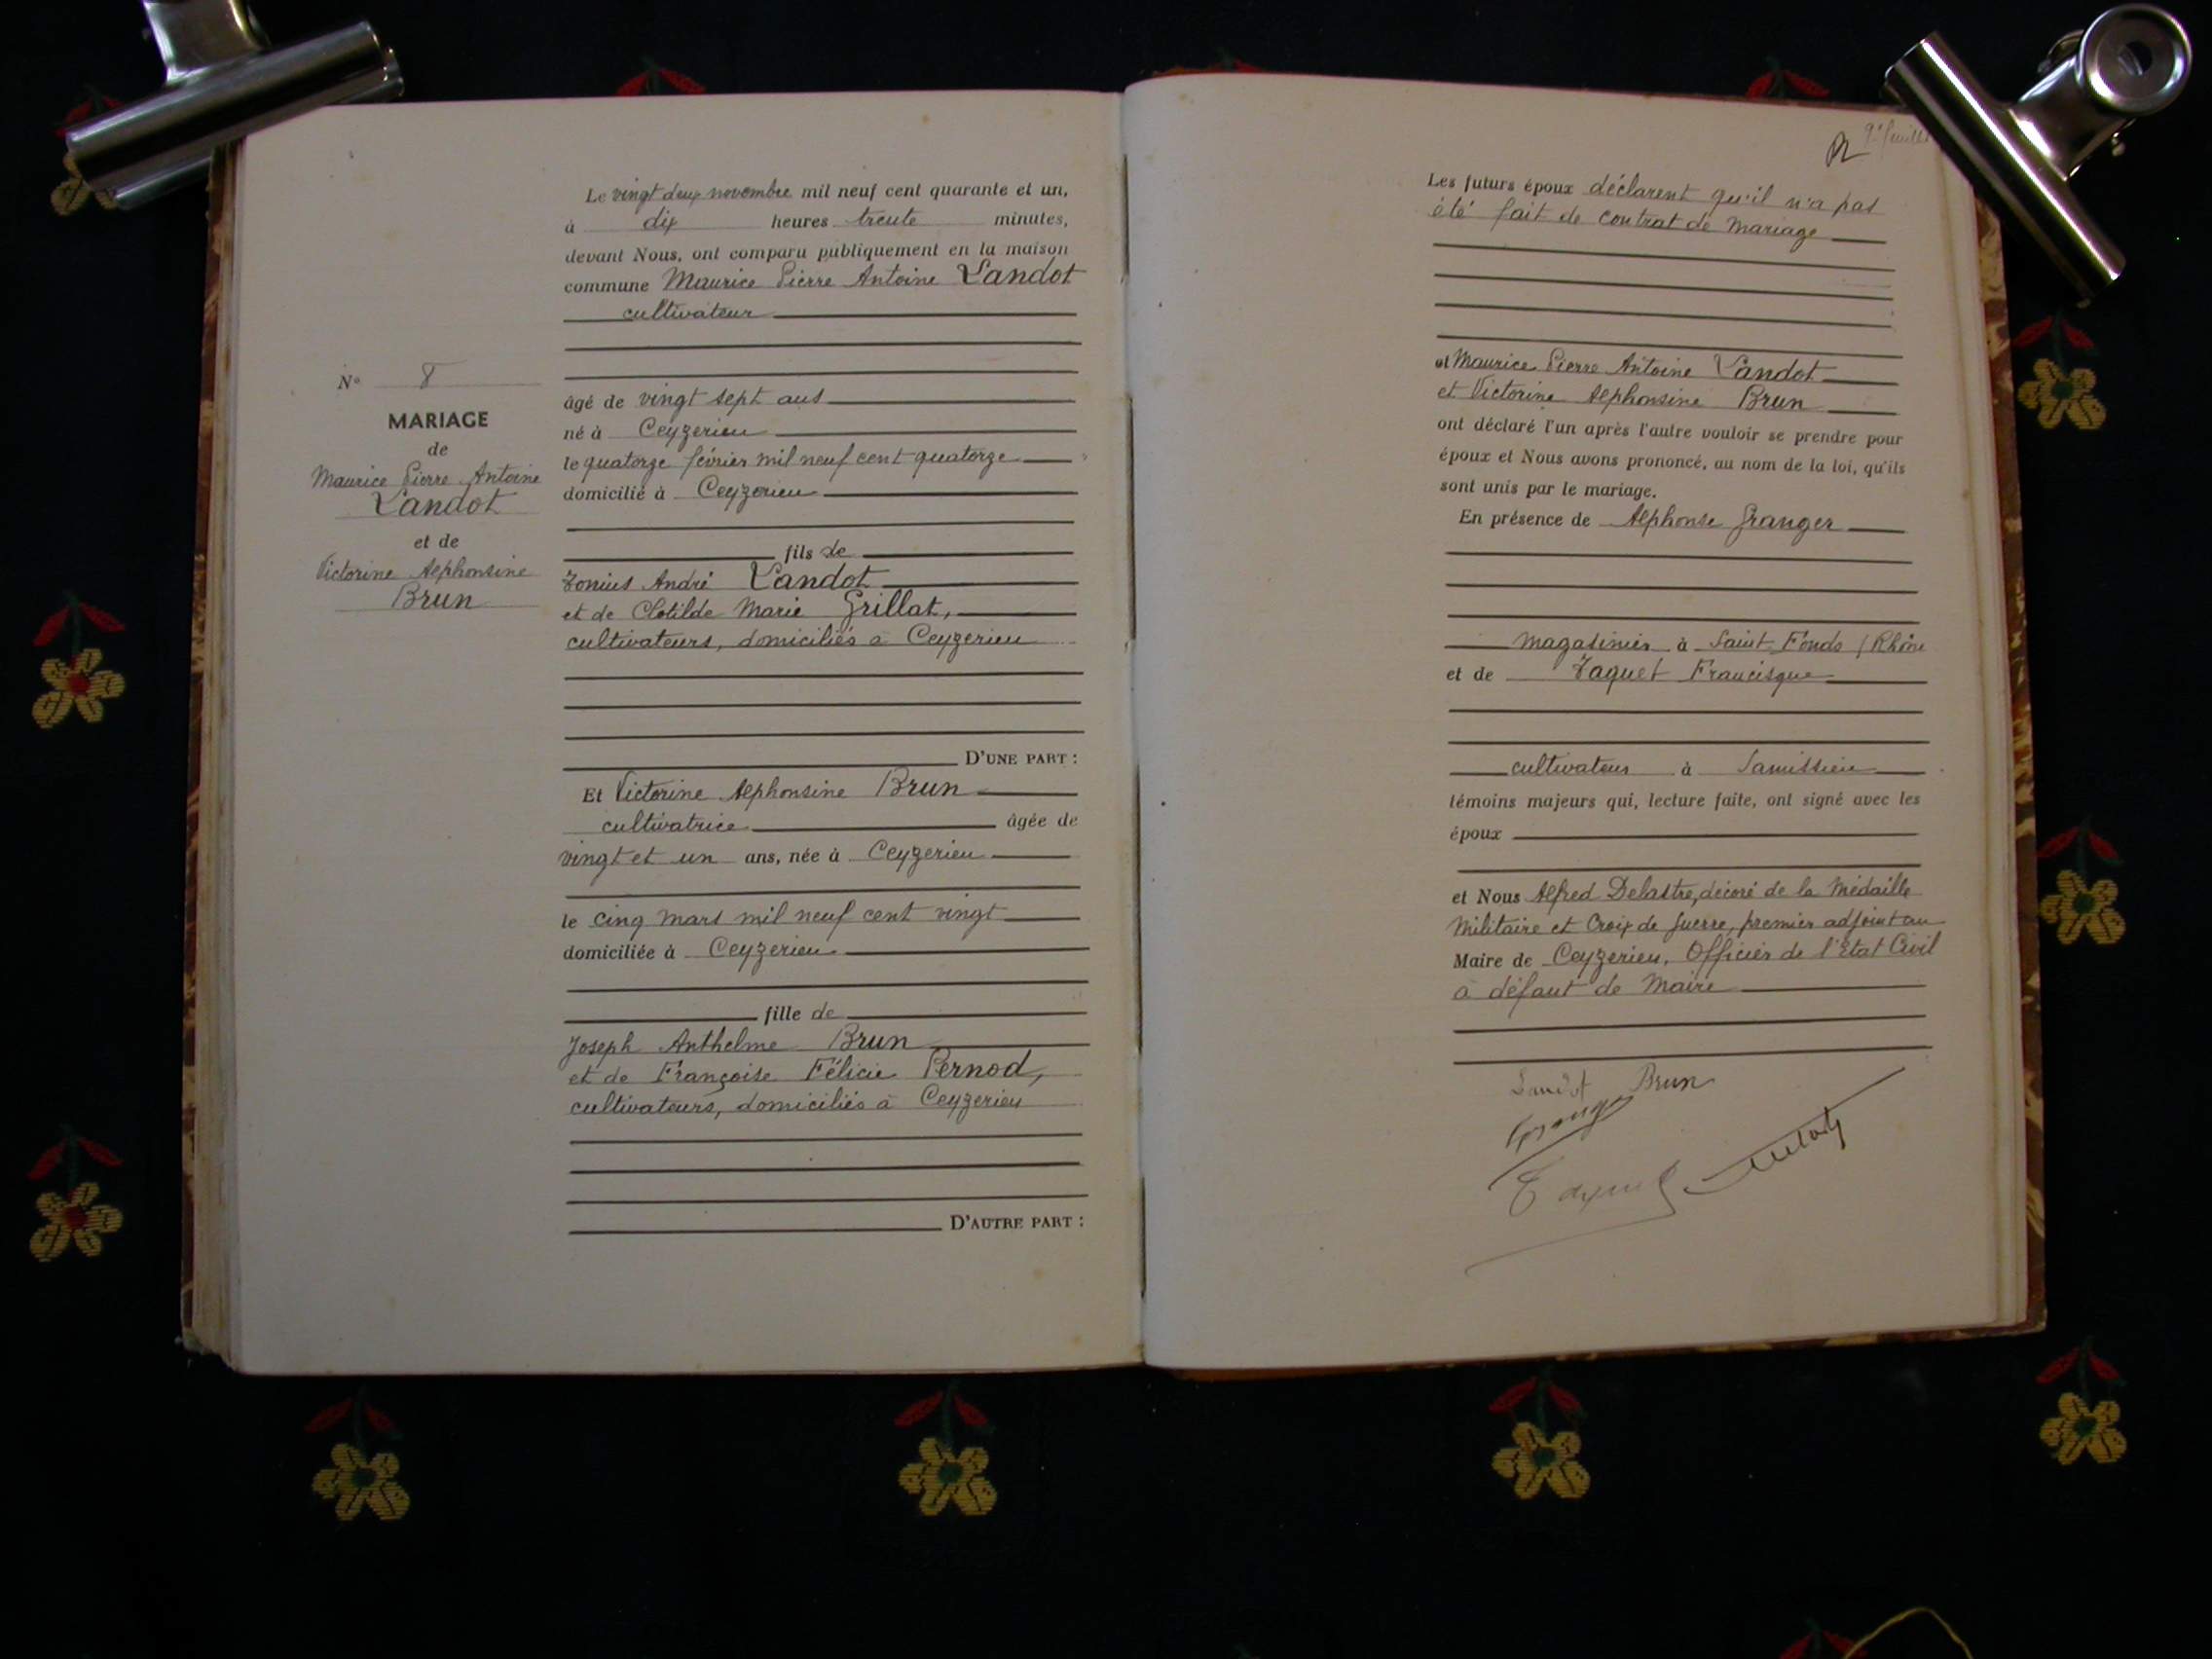 N° 8
MARIAGE
de
Maurice Pierre Antoine
Landot
et de
Victorine Alphonsine
Brun
Le vingt deux novembre mil neuf cent quarante et un,
à dix heures trente minutes,
devant Nous, ont comparu publiquement en la maison
commune Maurice Pierre Antoine Landot
cultivateur
âgé de vingt sept ans
né à Ceyzerieu
le quatorze février mil neuf cent quatorze
domicilié à Ceyzerieu
fils de
André Landot
et de Clotilde Marie Grillat,
cultivateurs, domiciliés à Ceyzerieu
D'UNE PART :
Et Victorine Alphonsine Brun
cultivatrice âgée de
vingt et un ans, née à Ceyzerieu
le cinq mars mil neuf cent vingt
domiciliée à Ceyzerieu
fille de
Joseph Anthelme Brun
et de Françoise Félicie Pernod,
cultivateurs, domiciliés à Ceyzerieu
D'AUTRE PART :
9e feuillet
Les futurs époux déclarent qu'il n'a pas
été fait de contrat de mariage
et Maurice Pierre Antoine Landot
et Victorine Alphonsine Brun
ont déclaré l'un après l'autre vouloir se prendre pour
époux et Nous avons prononcé, au nom de la loi, qu'ils
sont unis par le mariage.
En présence de Alphonse Granger
magasinier à Saint-Fonds (Rhône
et de Taquet Francisque
cultivateur à
témoins majeurs qui, lecture faite, ont signé avec les
époux
et Nous Alfred Delastre, décoré de la Médaille
Militaire et Croix de Guerre, premier adjoint au
Maire de Ceyzerieu, Officier de l'Etat Civil
à défaut de Maire
Landot Brun
Granger
Taquet